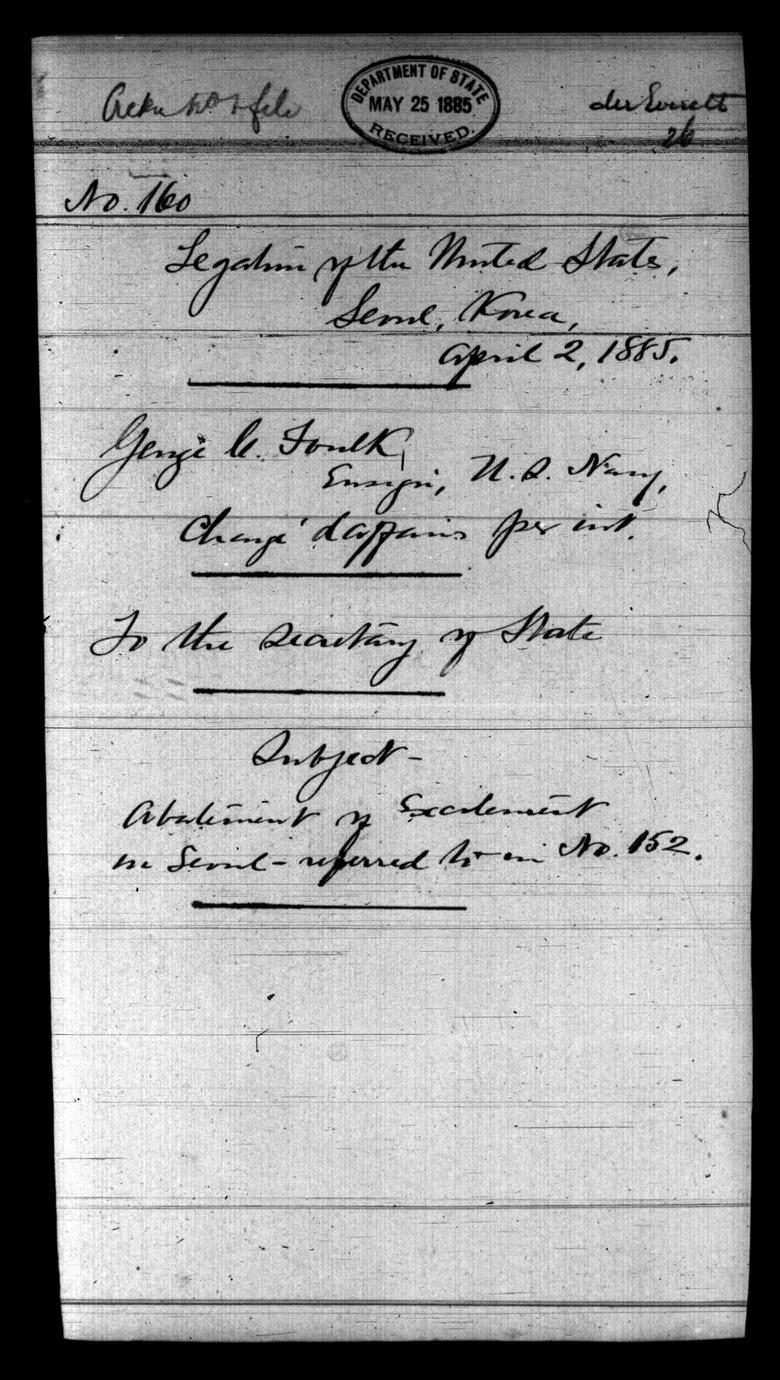 DEPARTMENT OF STATE
MAY 25 1885
RECEIVED.
file
Everett
26
No. 160
Legation of the United States,
Seoul, Korea,
April 2, 1885.
George C. Foulk,
Ensign, U.S. Navy,
Chargé d'affaires per int.
To the Secretary of State
Subject-
Abatement of Excitement
in Seoul - referred to in No. 152.